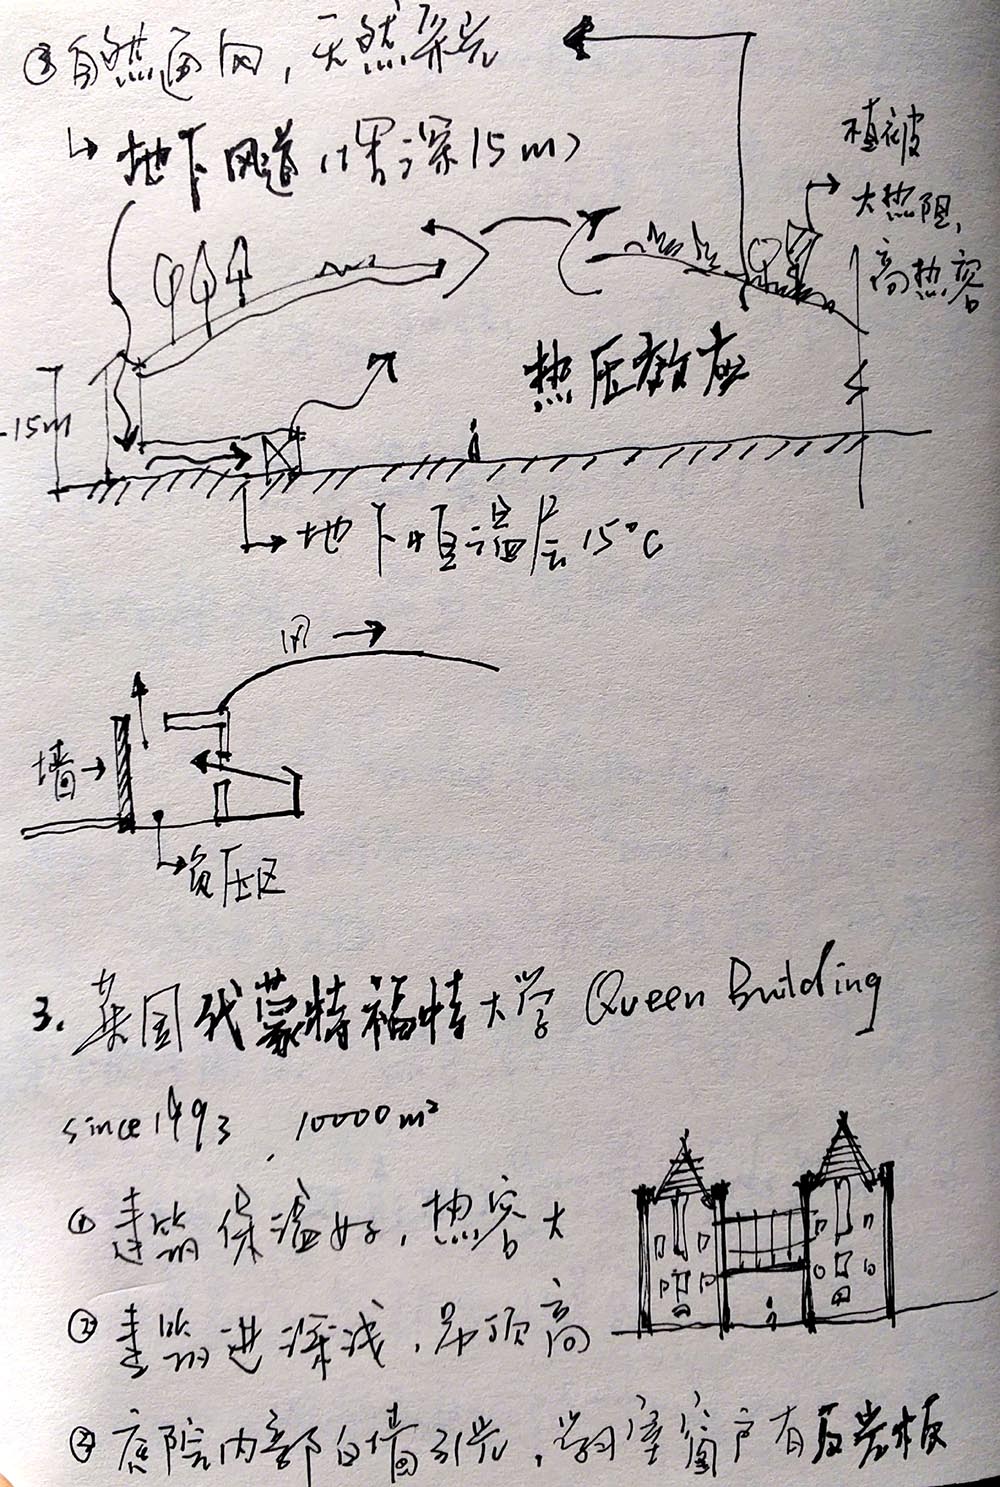 ③自然通风,天然采光
↳ 地下风道(埋深15m)
植被
大热阻,
高热容
热压效应
-15m
地下恒温层15°C
风
墙
负压区
3. 英国代蒙特福特大学 Queen Building
since 1993, 10000m²
① 建筑保温好,热容大
② 建筑进深浅,吊顶高
③ 庭院内部白墙引光,教室窗户有反光板